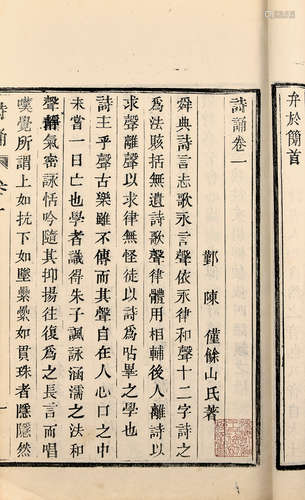 弁於簡首
詩誦卷一
鄞 陳 僅餘山氏著
舜典詩言志歌永言聲依永律和聲十二字詩之
為法賅括無遺詩歌聲律體用相輔後人離詩以
求聲離聲以求律無怪徒以詩為呫畢之學也
詩主乎聲古樂雖不傳而其聲自在人心口之中
未嘗一日亡也學者識得朱子諷詠涵濡之法和
聲靜氣密詠恬吟隨其抑揚往復為之長言而唱
嘆覺所謂上如抗下如墜纍纍如貫珠者隱隱然
詩誦 卷一 一